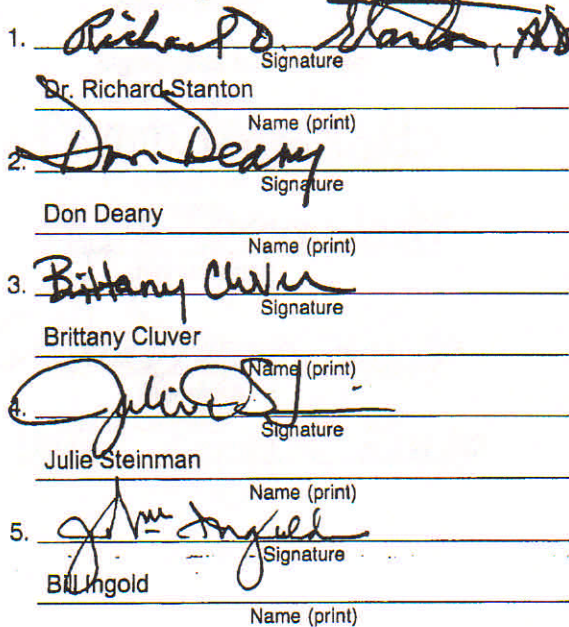 1. Richard D. Stanton, MD
Signature
Dr. Richard Stanton
Name (print)
2. Don Deany
Signature
Don Deany
Name (print)
3. Brittany Cluver
Signature
Brittany Cluver
Name (print)
4. Julie
Signature
Julie Steinman
Name (print)
5. J. Wm Ingold
Signature
Bill Ingold
Name (print)